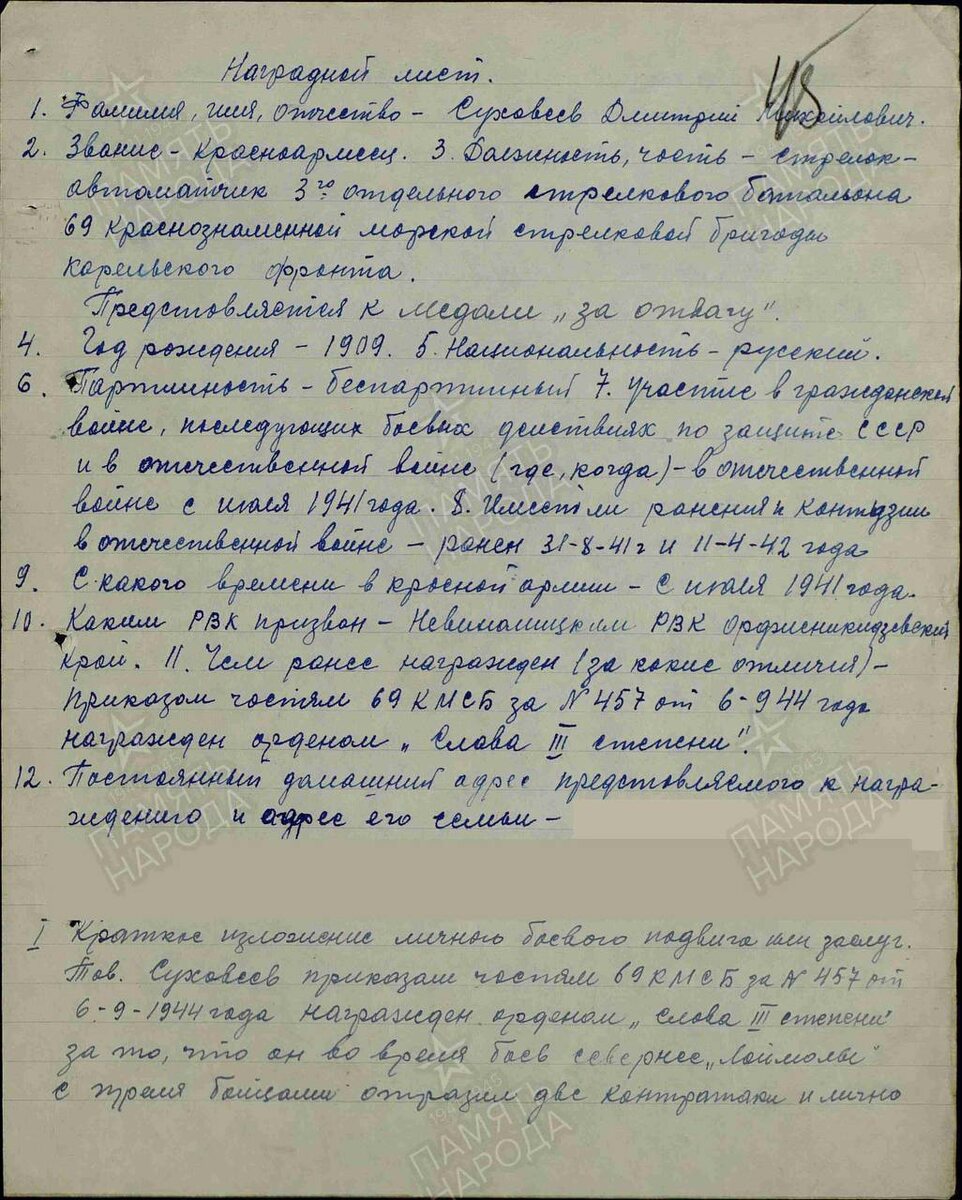 Наградной лист.
1. Фамилия, имя, отчество – Суховеев Дмитрий Михайлович.
2. Звание – Красноармеец. 3. Должность, часть – стрелок-
автоматчик 3го отдельного стрелкового батальона
69 Краснознаменной морской стрелковой бригады
Карельского фронта.
Представляется к медали „за отвагу".
4. Год рождения – 1909. 5. Национальность – русский.
6. Партийность – беспартийный 7. Участие в гражданской
войне, последующих боевых действиях по защите СССР
и в отечественной войне (где, когда) – в отечественной
войне с июля 1941 года. 8. Имеет ли ранения и контузии
в отечественной войне – ранен 31-8-41г и 11-4-42 года
9. С какого времени в красной армии – с июля 1941 года.
10. Каким РВК призван – Невинномицким РВК Орджоникидзевский
край. 11. Чем ранее награжден (за какие отличия) –
Приказом частям 69 КМСБ за № 457 от 6-9 44 года
награжден орденом „Слава III степени".
12. Постоянный домашний адрес представляемого к награ-
ждению и адрес его семьи –
I Краткое изложение личного боевого подвига или заслуг.
Тов. Суховеев приказам частям 69 КМСБ за № 457 от
6-9-1944 года награжден орденом „Слова III степени"
за то, что он во время боев севернее „Лоймолы"
с тремя бойцами отразил две контратаки и лично
ПАМЯТЬ НАРОДА